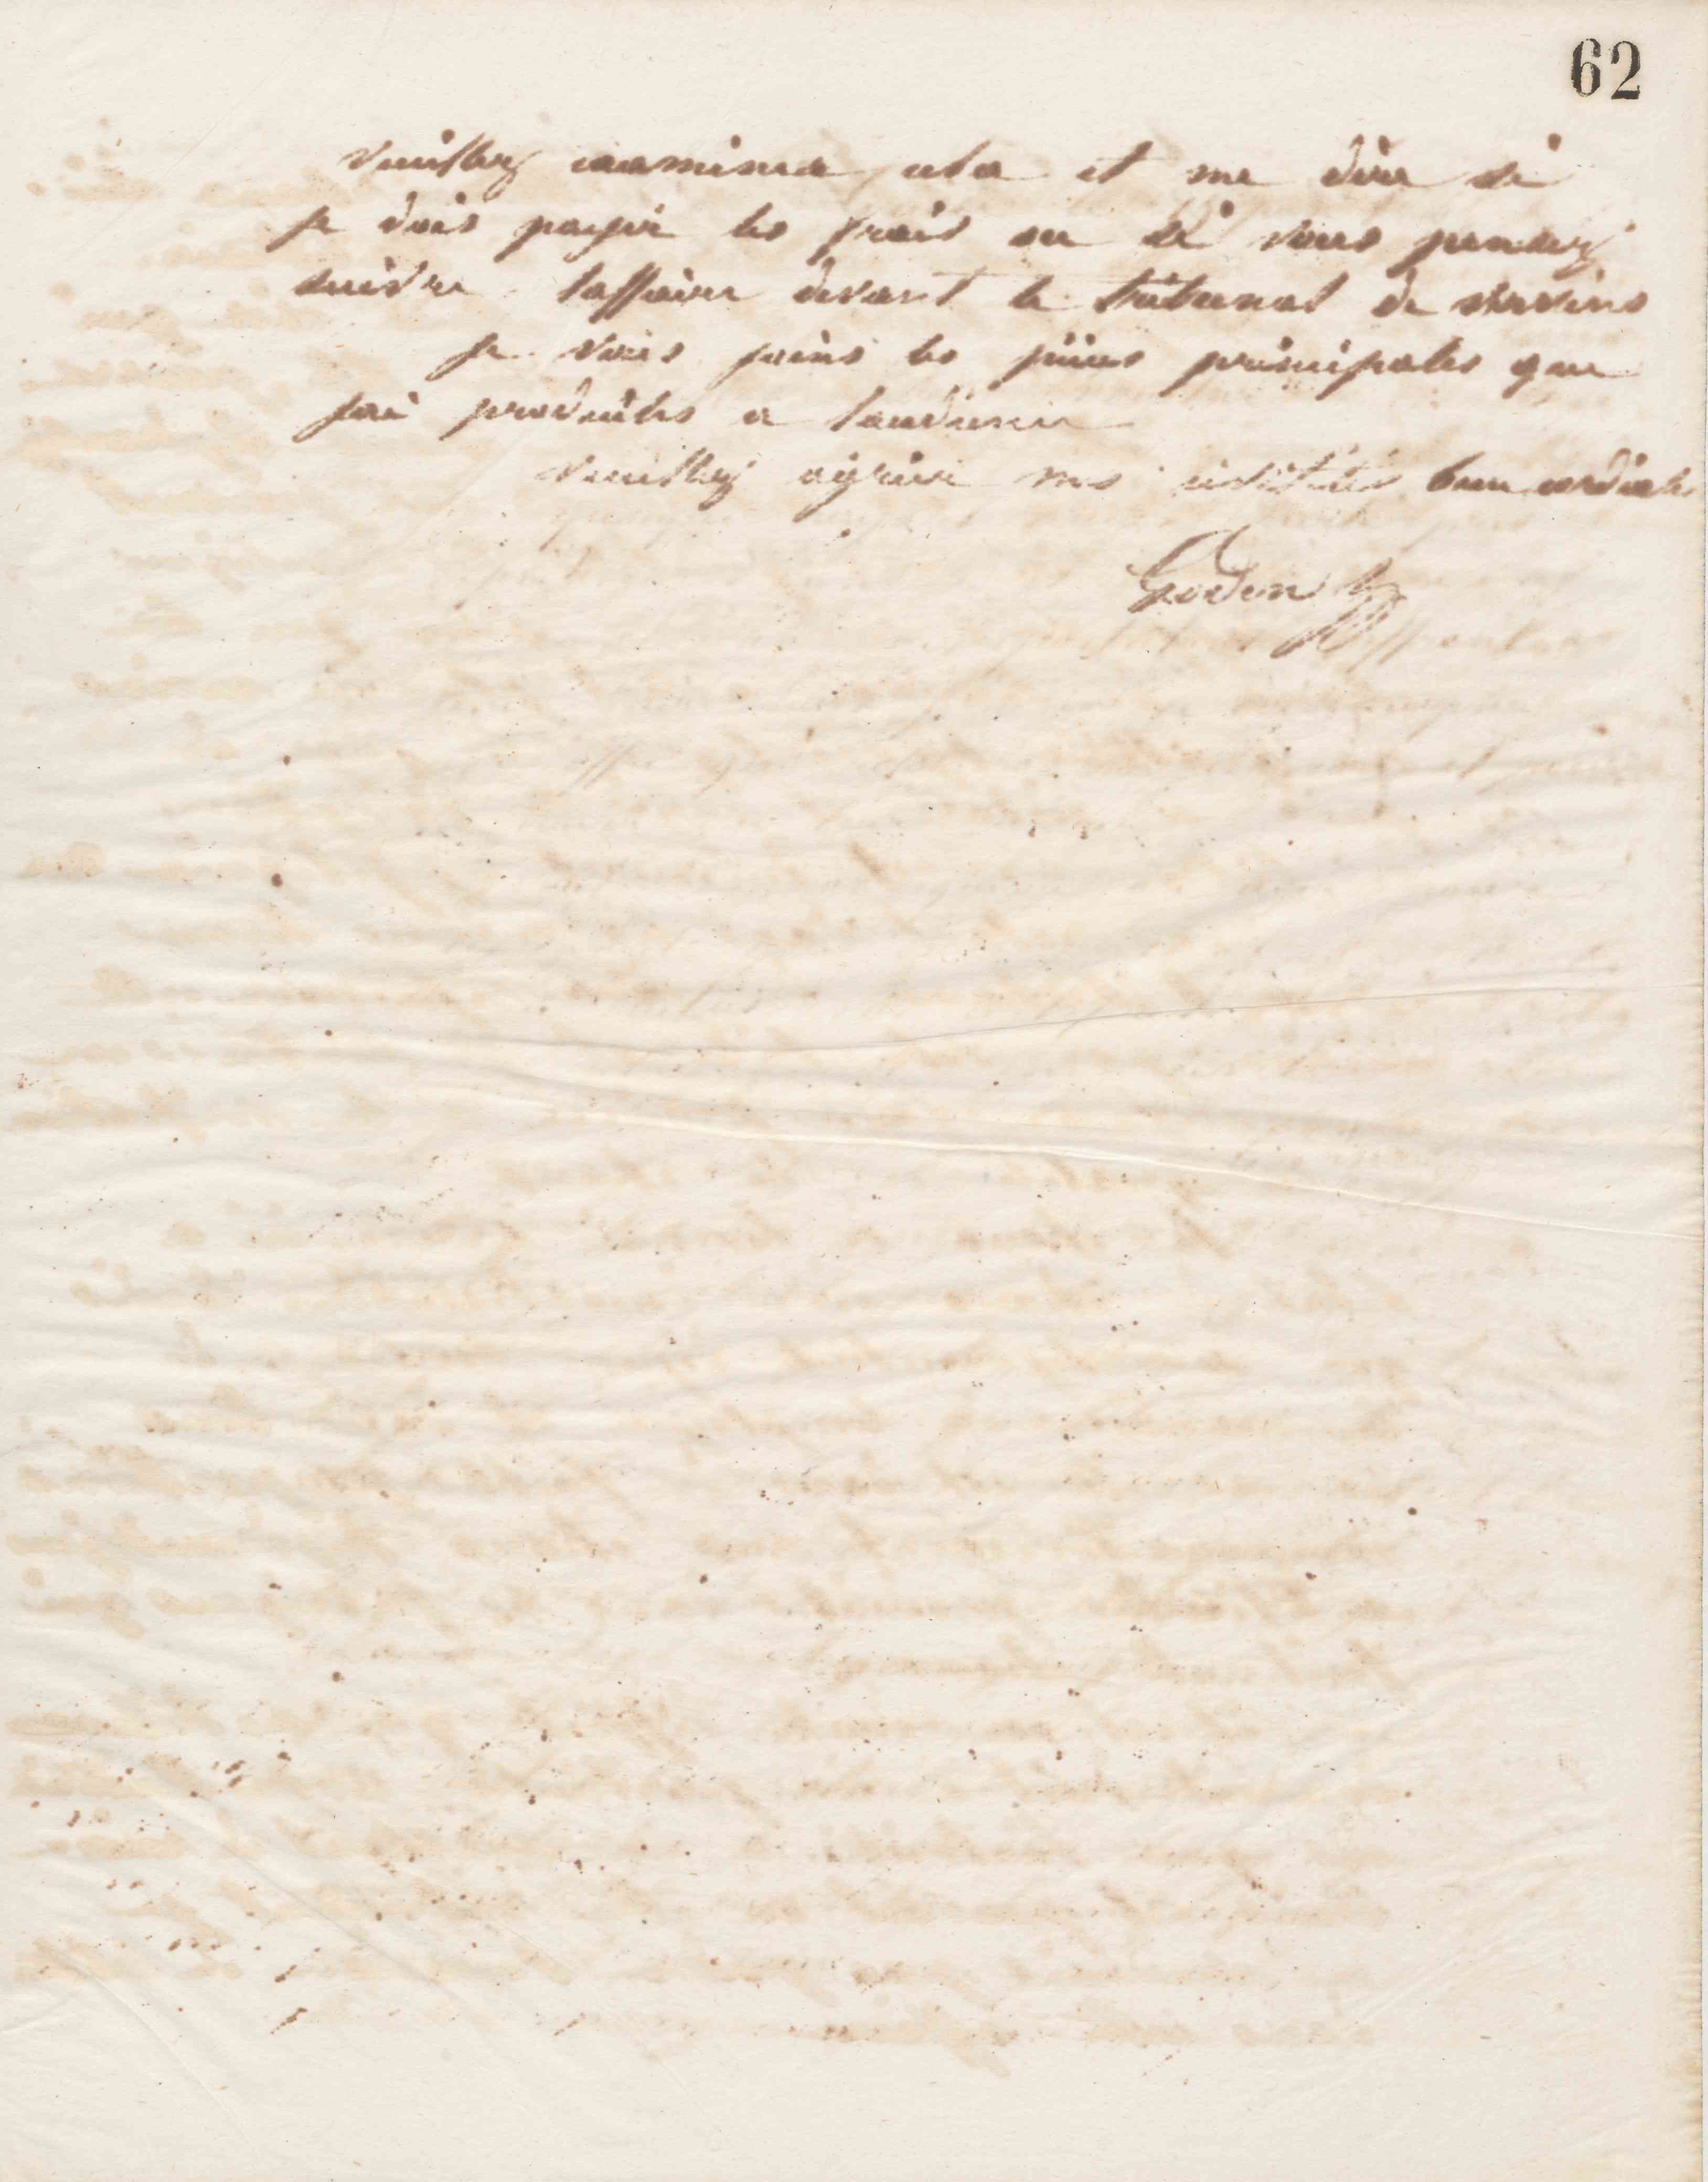 62
veuillez examiner cela et me dire si
je dois payer les frais ou si vous pensez
suivre laffaire devant le tribunal de vervins
je vous joins les pièces principales que
jai produites a laudience
veuillez agréer mes civilités bien cordiales
Godin